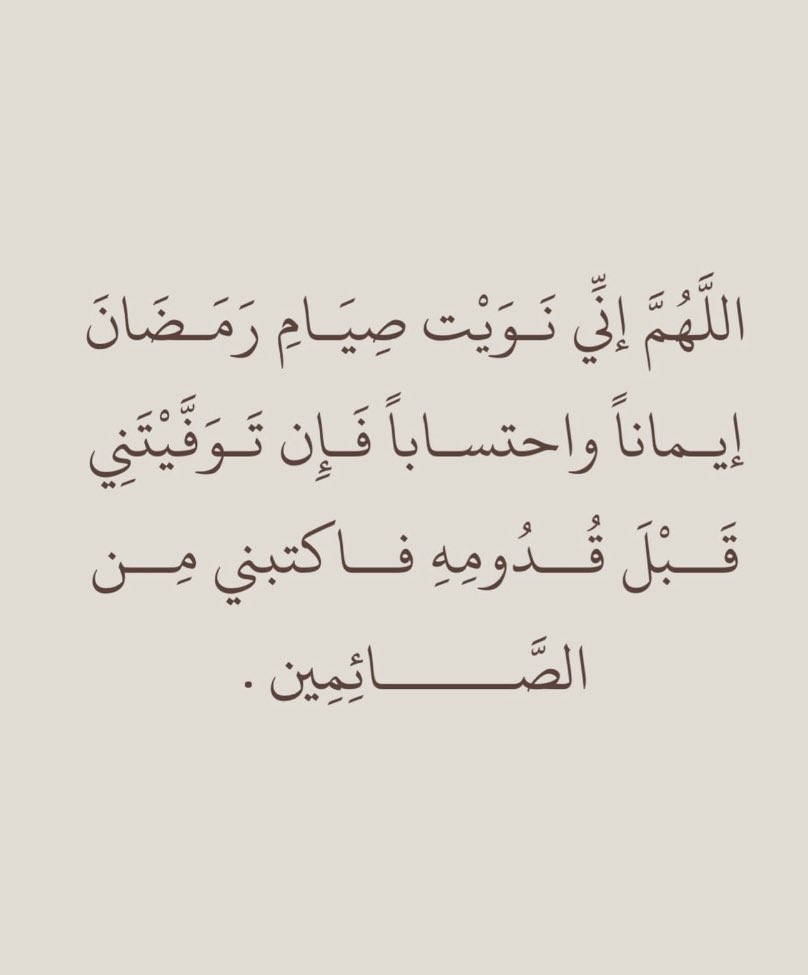 اللَّهُمَّ إنِّي نَـوَيْت صِيَـامِ رَمَـضَانَ
إيـماناً واحتسـاباً فَـإِن تَـوَفَّيْتَنِي
قَـــبْلَ قُـــدُومِهِ فـــاكتبني مِـــن
الصَّـــــــائِمِين .